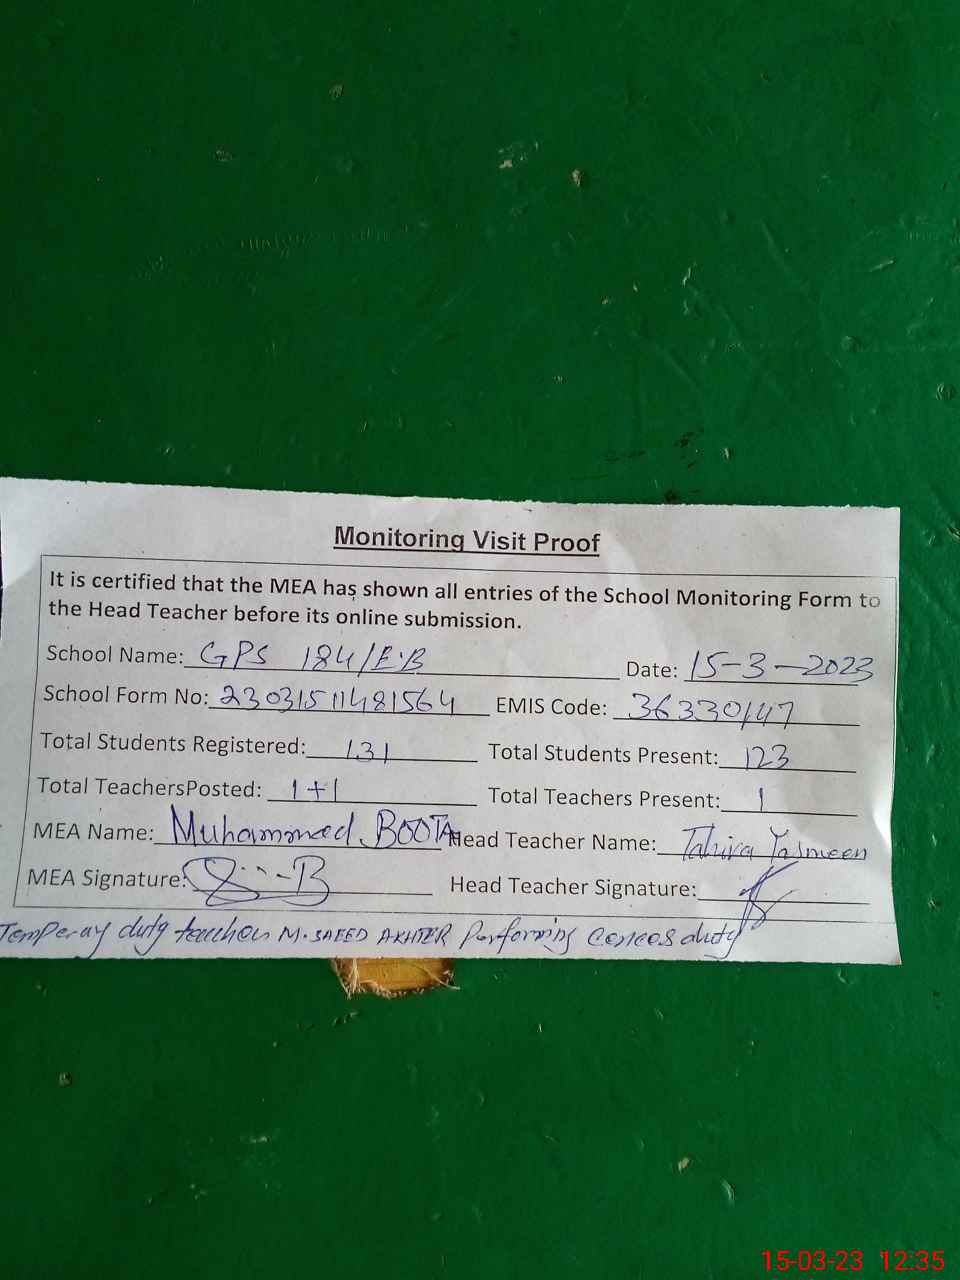 Monitoring Visit Proof
It is certified that the MEA has shown all entries of the School Monitoring Form to
the Head Teacher before its online submission.
School Name: GPS 184/E.B Date: 15-3-2023
School Form No: 23031511481564 EMIS Code: 36330147
Total Students Registered: 131 Total Students Present: 123
Total TeachersPosted: 1+1 Total Teachers Present: 1
MEA Name: Muhammad. BOOTA Head Teacher Name: Tahira Yasmeen
MEA Signature: Head Teacher Signature:
Temperay duty teacher M. SAEED AKHTER Performing Cences duty
15-03-23 12:35